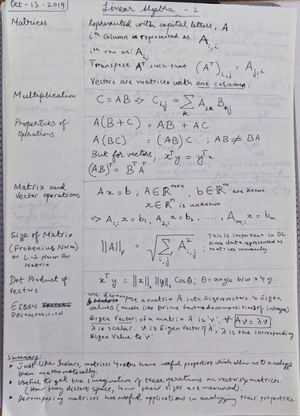 Oct-13-2019
Linear Algebra - 2
Matrices
Represented with capital letters, A.
ith Column is represented as: A:,i
ith row as: Ai,:
Transpose Aᵀ such that (Aᵀ)i,j = Aj,i
Vectors are matrices with one column.
Multiplication
C = AB ⇒ Ci,j = Σk Ai,k Bk,j
Properties of Operations
A(B + C) = AB + AC
A(BC) = (AB)C ; AB ≠ BA
But for vectors, xᵀy = yᵀx
(AB)ᵀ = BᵀAᵀ
Matrix and Vector operations
Ax = b ; A ∈ ℝᵐˣⁿ, b ∈ ℝᵐ are known
x ∈ ℝⁿ is unknown
⇒ A1,:x = b1, A2,:x = b2, ..., Am,:x = bm
Size of Matrix
(Frobenius Norm)
or L-2 Norm for Matrix
||A||F = √ Σi,j A²i,j
This is important in DL
since data represented as
matrices commonly
Dot Product of Vectors
xᵀy = ||x||₂ ||y||₂ Cosθ; θ = angle b/w x & y
EIGEN
DECOMPOSITION
decompose a matrix A into Eigenvectors & Eigen
values (much like prime factor decomposition of integers)
Eigen Vector: of a matrix 'A' is 'v', if Av = λv
λ is scalar 'v' is Eigen Vector of A, λ is the corresponding
Eigen Value to 'v'.
Summary:
Just like Scalars, matrices & vectors have useful properties which allow us to analyze
them mathematically.
Useful to get the imagination of these operations on vectors/matrices.
(how they distort space, how their sizes are measured).
Decomposing matrices has useful applications in analyzing their properties